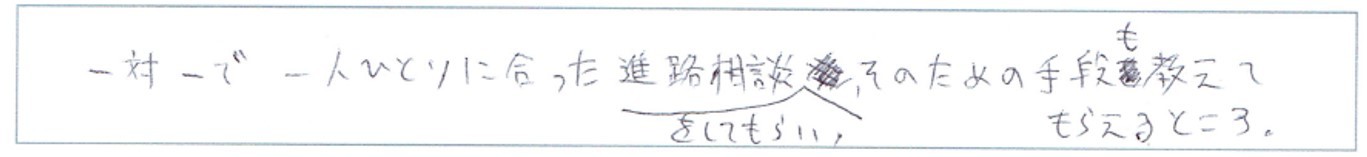 一対一で 一人ひとりに合った進路相談をしてもらい、そのための手段も教えて
もらえるところ。